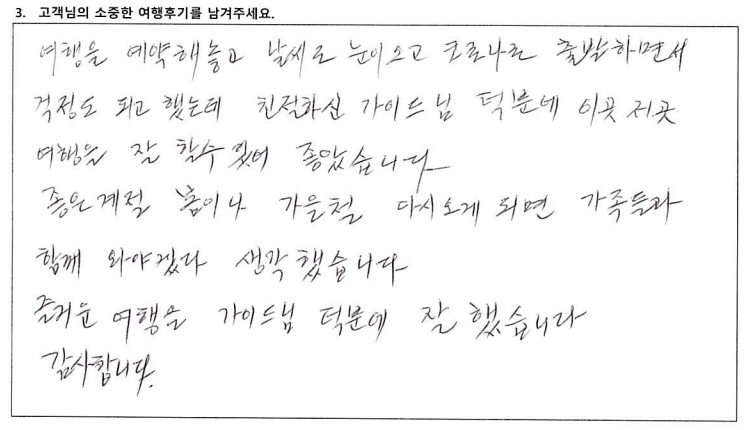 3. 고객님의 소중한 여행후기를 남겨주세요.
여행을 예약해놓고 날씨로 눈이오고 코로나로 출발하면서
걱정도 되고 했는데 친절하신 가이드님 덕분에 이곳 저곳
여행을 잘 할수 있어 좋았습니다
좋은계절 봄이나 가을철 다시오게 되면 가족들과
함께 와야겠다 생각했습니다
즐거운 여행을 가이드님 덕분에 잘 했습니다
감사합니다.